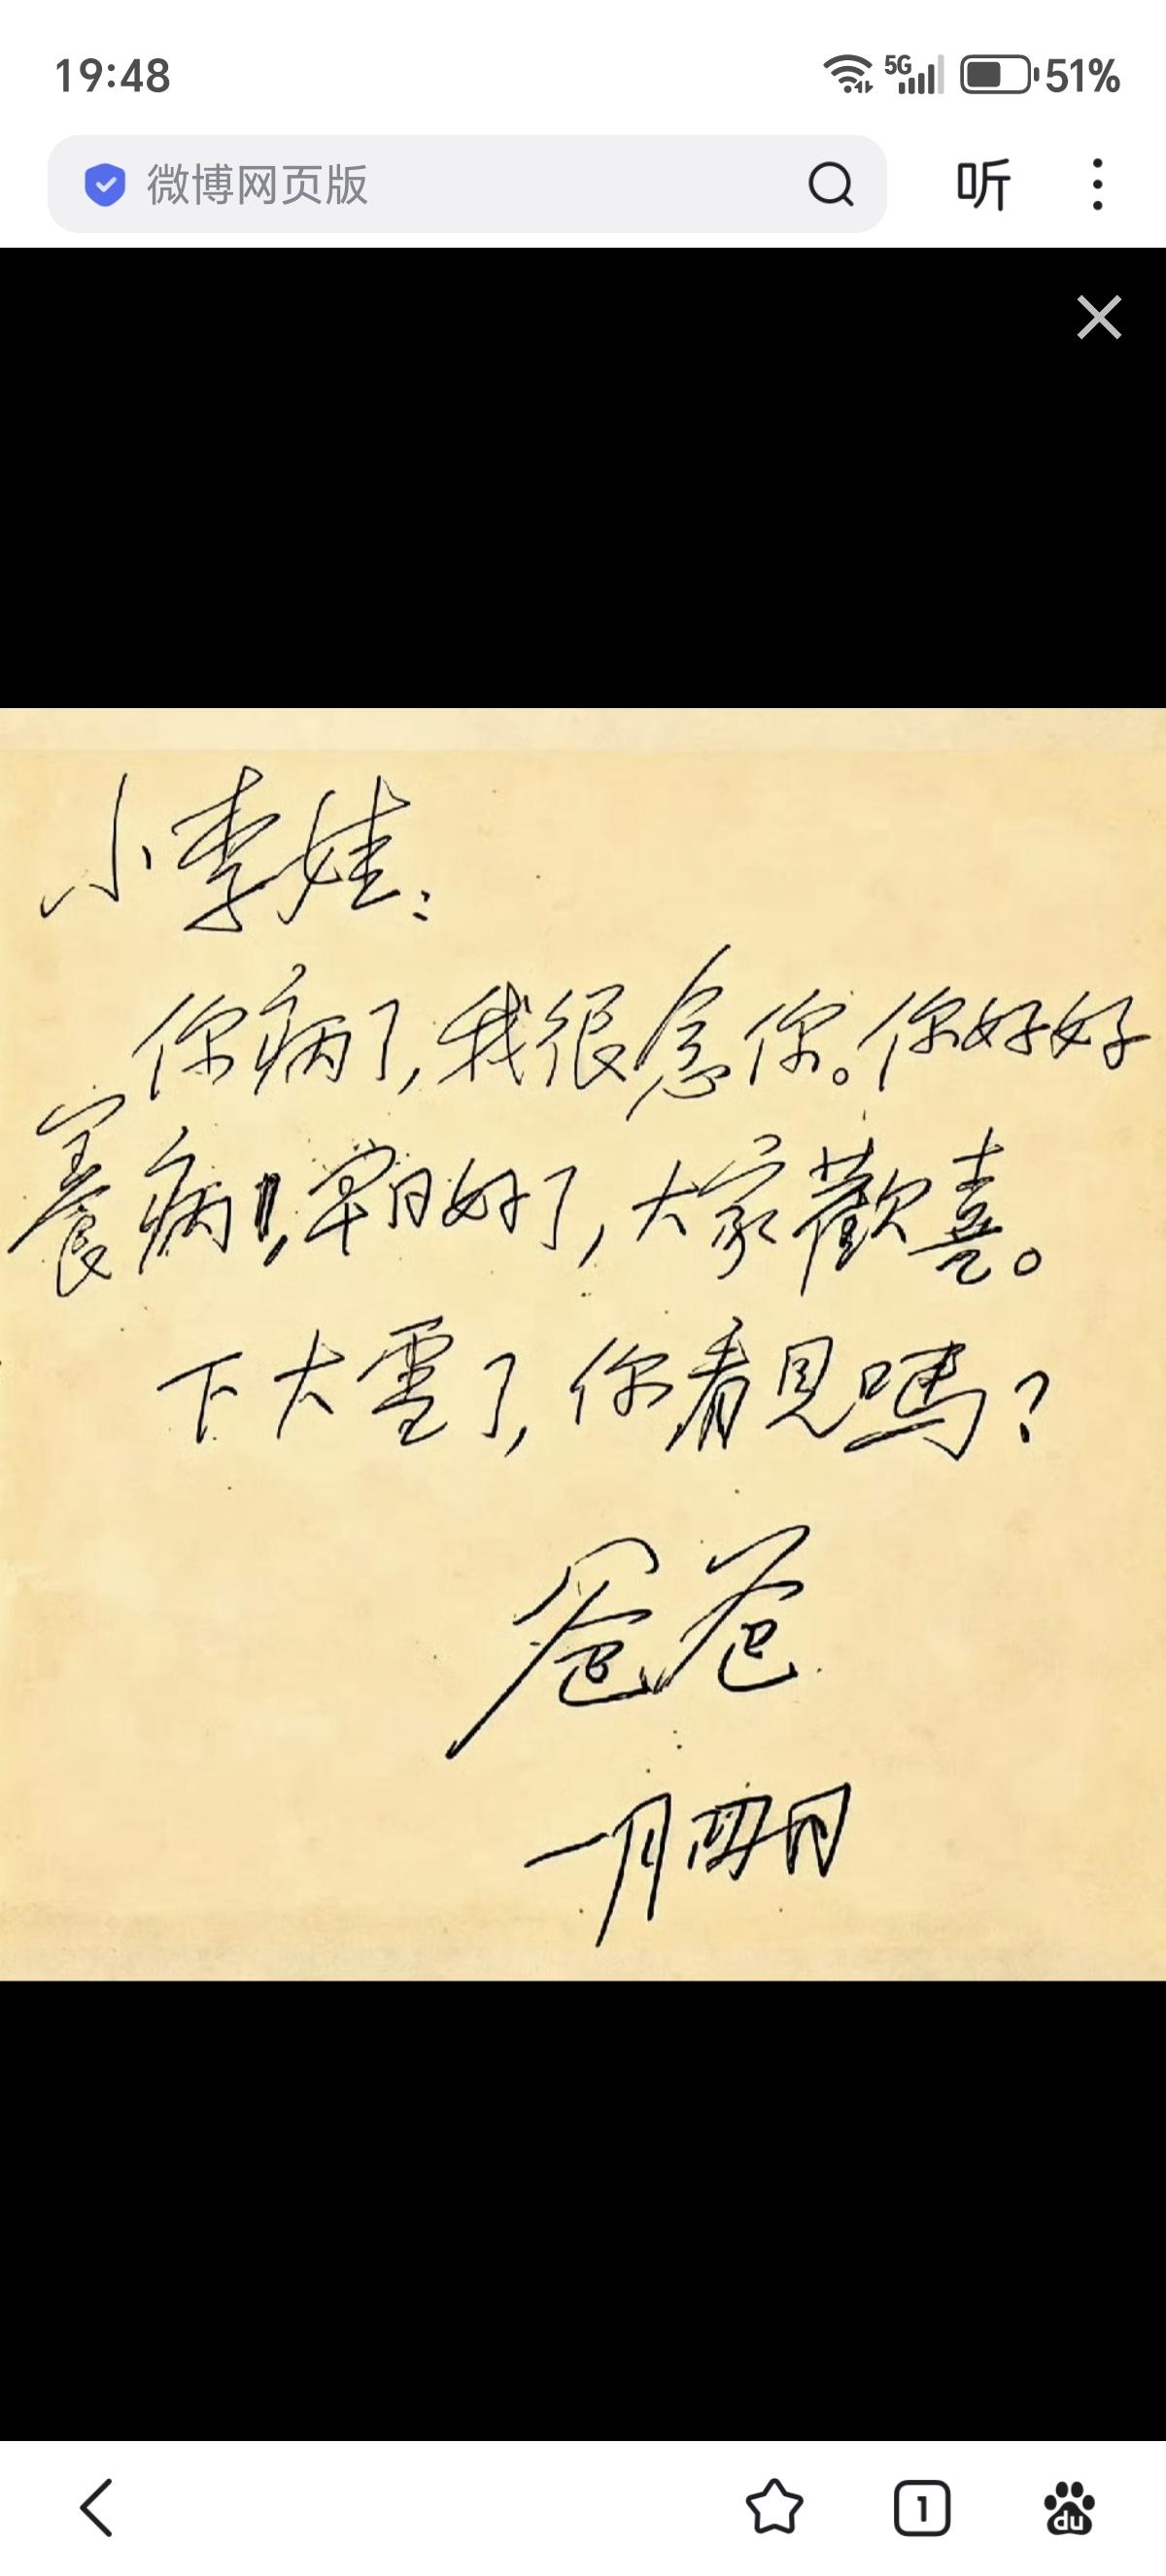 19:48 5G 51%
微博网页版 听
小李娃:
你病了,我很念你。你好好
养病,早日好了,大家歡喜。
下大雪了,你看見嗎?
爸爸
一月四日
1
du